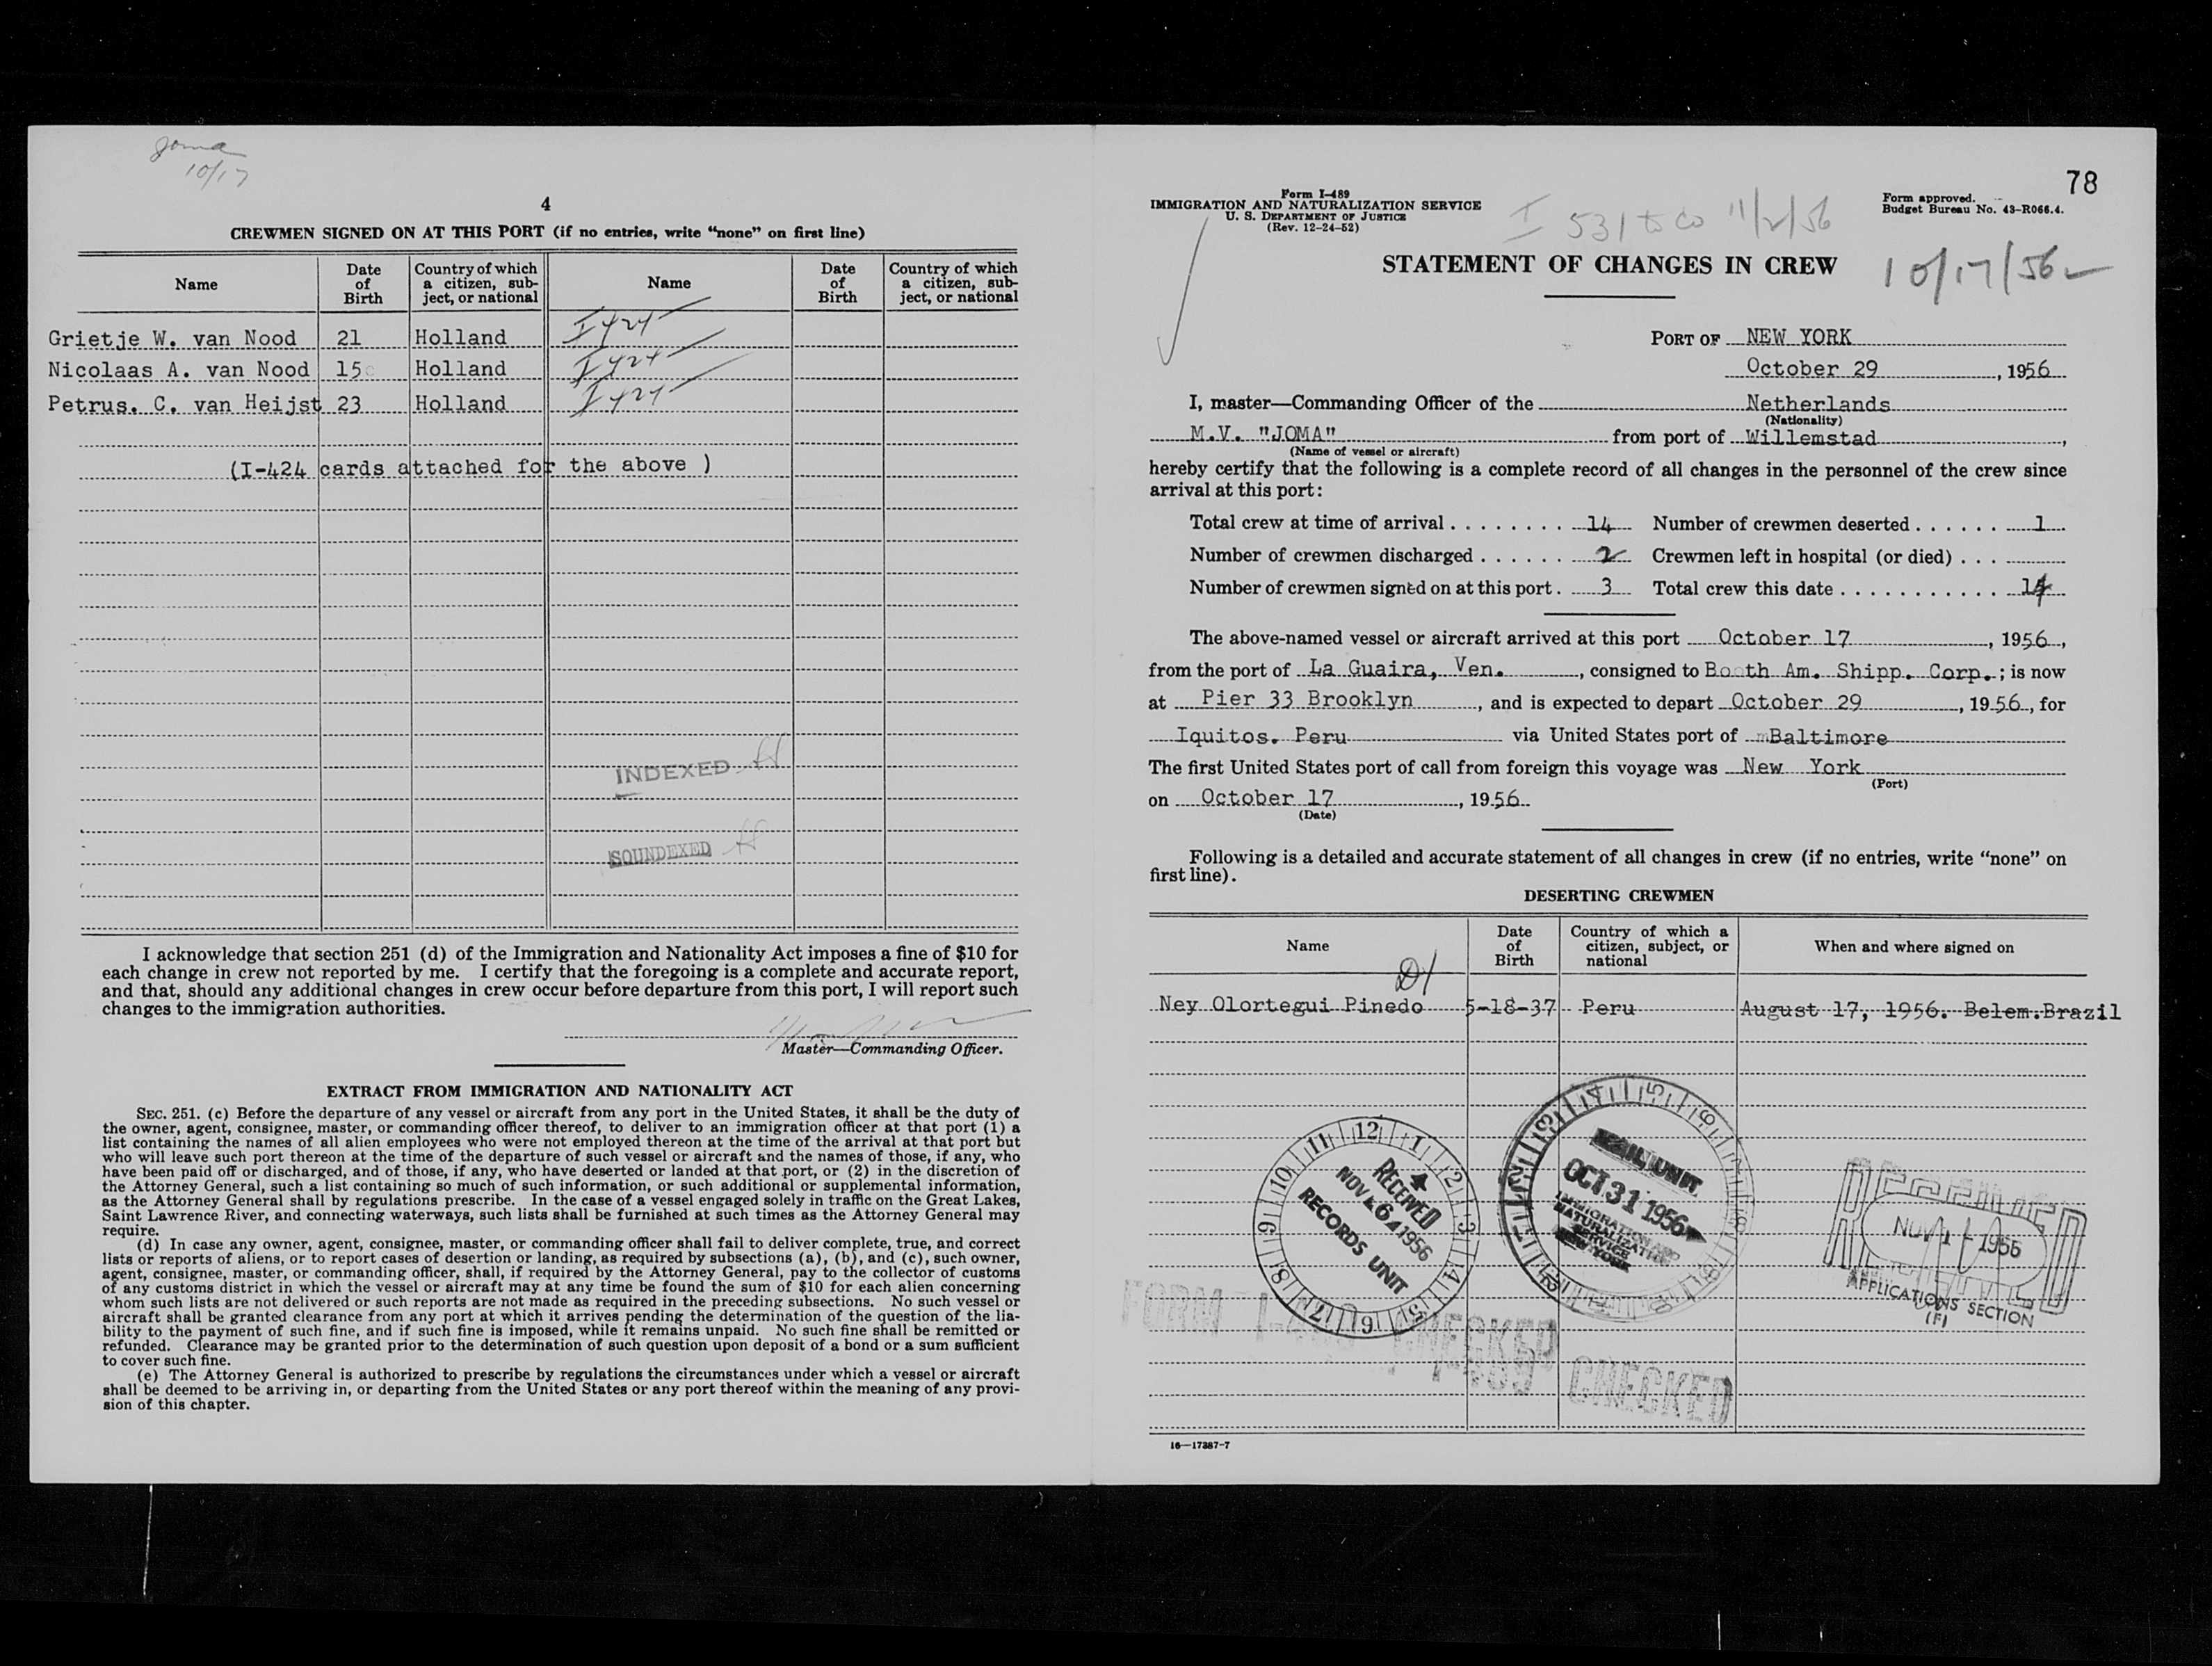 Joma
10/17
4
CREWMEN SIGNED ON AT THIS PORT (if no entries, write “none” on first line)
Name Date of Birth Country of which a citizen, subject, or national Name Date of Birth Country of which a citizen, subject, or national
Grietje W. van Nood 21 Holland I 424
Nicolaas A. van Nood 15 Holland I 424
Petrus. C. van Heijst 23 Holland I 424
(I-424 cards attached for the above )
INDEXED
SOUNDEXED
I acknowledge that section 251 (d) of the Immigration and Nationality Act imposes a fine of $10 for
each change in crew not reported by me. I certify that the foregoing is a complete and accurate report,
and that, should any additional changes in crew occur before departure from this port, I will report such
changes to the immigration authorities.
Master—Commanding Officer.
EXTRACT FROM IMMIGRATION AND NATIONALITY ACT
SEC. 251. (c) Before the departure of any vessel or aircraft from any port in the United States, it shall be the duty of
the owner, agent, consignee, master, or commanding officer thereof, to deliver to an immigration officer at that port (1) a
list containing the names of all alien employees who were not employed thereon at the time of the arrival at that port but
who will leave such port thereon at the time of the departure of such vessel or aircraft and the names of those, if any, who
have been paid off or discharged, and of those, if any, who have deserted or landed at that port, or (2) in the discretion of
the Attorney General, such a list containing so much of such information, or such additional or supplemental information,
as the Attorney General shall by regulations prescribe. In the case of a vessel engaged solely in traffic on the Great Lakes,
Saint Lawrence River, and connecting waterways, such lists shall be furnished at such times as the Attorney General may
require.
(d) In case any owner, agent, consignee, master, or commanding officer shall fail to deliver complete, true, and correct
lists or reports of aliens, or to report cases of desertion or landing, as required by subsections (a), (b), and (c), such owner,
agent, consignee, master, or commanding officer, shall, if required by the Attorney General, pay to the collector of customs
of any customs district in which the vessel or aircraft may at any time be found the sum of $10 for each alien concerning
whom such lists are not delivered or such reports are not made as required in the preceding subsections. No such vessel or
aircraft shall be granted clearance from any port at which it arrives pending the determination of the question of the lia-
bility to the payment of such fine, and if such fine is imposed, while it remains unpaid. No such fine shall be remitted or
refunded. Clearance may be granted prior to the determination of such question upon deposit of a bond or a sum sufficient
to cover such fine.
(e) The Attorney General is authorized to prescribe by regulations the circumstances under which a vessel or aircraft
shall be deemed to be arriving in, or departing from the United States or any port thereof within the meaning of any provi-
sion of this chapter.
78
Form I-489
IMMIGRATION AND NATURALIZATION SERVICE
U. S. DEPARTMENT OF JUSTICE
(Rev. 12-24-52)
I 531 to co 11/2/56
Form approved.
Budget Bureau No. 43-R066.4.
STATEMENT OF CHANGES IN CREW
10/17/56
PORT OF NEW YORK
October 29, 1956
I, master—Commanding Officer of the Netherlands
(Nationality)
M.V. "JOMA" from port of Willemstad,
(Name of vessel or aircraft)
hereby certify that the following is a complete record of all changes in the personnel of the crew since
arrival at this port:
Total crew at time of arrival . . . . . . . . 14 Number of crewmen deserted . . . . . . 1
Number of crewmen discharged . . . . . . 2 Crewmen left in hospital (or died) . . .
Number of crewmen signed on at this port . 3 Total crew this date . . . . . . . . . . . . 14
The above-named vessel or aircraft arrived at this port October 17, 1956,
from the port of La Guaira, Ven., consigned to Booth Am. Shipp. Corp.; is now
at Pier 33 Brooklyn, and is expected to depart October 29, 1956, for
Iquitos. Peru via United States port of Baltimore
The first United States port of call from foreign this voyage was New York
(Port)
on October 17, 1956
(Date)
Following is a detailed and accurate statement of all changes in crew (if no entries, write “none” on
first line).
DESERTING CREWMEN
Name Date of Birth Country of which a citizen, subject, or national When and where signed on
Ney Olortegui Pinedo 5-18-37 Peru August 17, 1956. Belem.Brazil
12 1 2 3 4 5 6 7 8 9 10 11
RECEIVED
NOV 6 1956
RECORDS UNIT
MAIL UNIT
OCT 31 1956
IMMIGRATION AND
NATURALIZATION
SERVICE
NEW YORK
RECEIVED
NOV 1 - 1956
APPLICATIONS SECTION
(F)
FORM I- CHECKED
I-489 CHECKED
16—17387-7